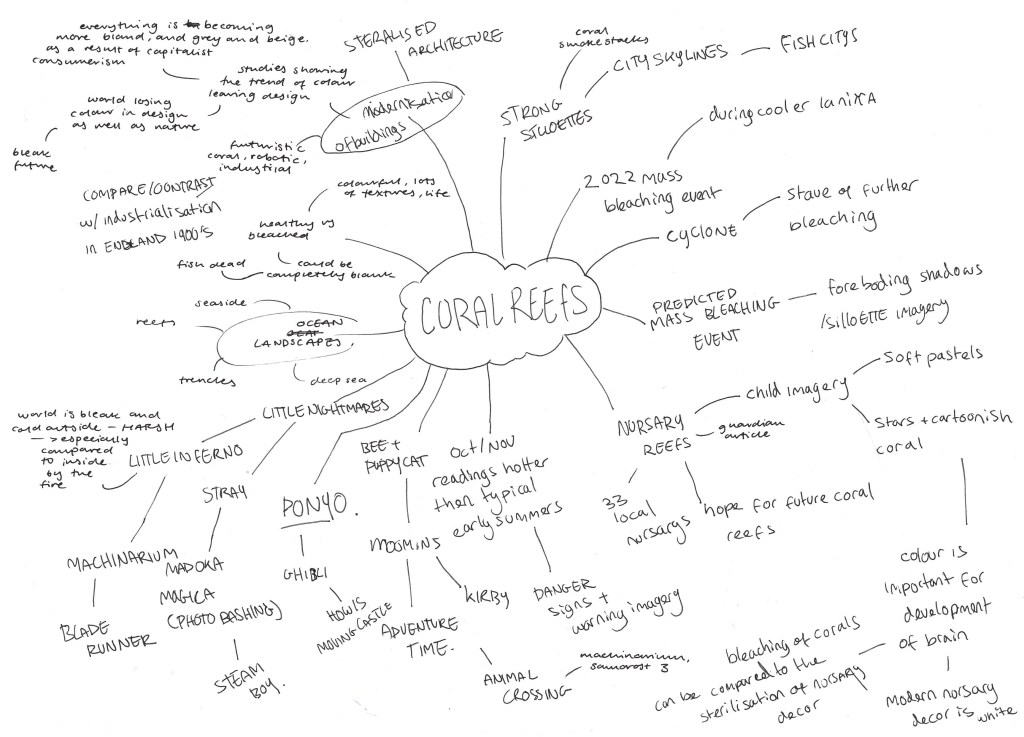 everything is becoming
more bland, and grey and beige.
as a result of capitalist
consumerism
studies showing
the trend of colour
leaving design
world losing
colour in design
as well as nature
bleak
future
STERALISED
ARCHITECTURE
modernisation
of buildings
futuristic
coral, robotic,
industrial
COMPARE/CONTRAST
w/ industrialisation
in ENGLAND 1900's
colourful, lots
of textures, life
healthy vs
bleached
could be
completely blank
fish dead
seaside
reefs
OCEAN
LANDSCAPES,
trenches
deep sea
CORAL REEFS
coral
smokestacks
CITY SKYLINES
FISH CITYS
STRONG
SILLOETTES
during cooler laniXA
2022 mass
bleaching event
CYCLONE
Stave of further
bleaching
PREDICTED
MASS BLEACHING
EVENT
foreboding shadows
/silloETTE imagery
NURSARY
REEFS
child imagery
Soft pastels
Stars + cartoonish
coral
guardian
article
33
local
nursarys
hope for future coral
reefs
colour is
important for
development
of brain
modern nursary
decor is white
bleaching of corals
can be compared to the
sterilisation of nursary
decor
LITTLE NIGHTMARES
LITTLE INFERNO
world is bleak and
cold outside - HARSH
-> especially
compared
to inside
by the
fire
MACHINARIUM
BLADE
RUNNER
STRAY
MADOKA
MAGICA
(PHOTO BASHING)
STEAM
BOY.
PONYO.
GHIBLI
HOWLS
MOVING CASTLE
BEE +
PUPPYCAT
MOOMINS
ADVENTURE
TIME.
KIRBY
ANIMAL
CROSSING
machinarium,
samorost 3
Oct/NOV
readings hotter
then typical
early summers
DANGER
signs +
warning imagery